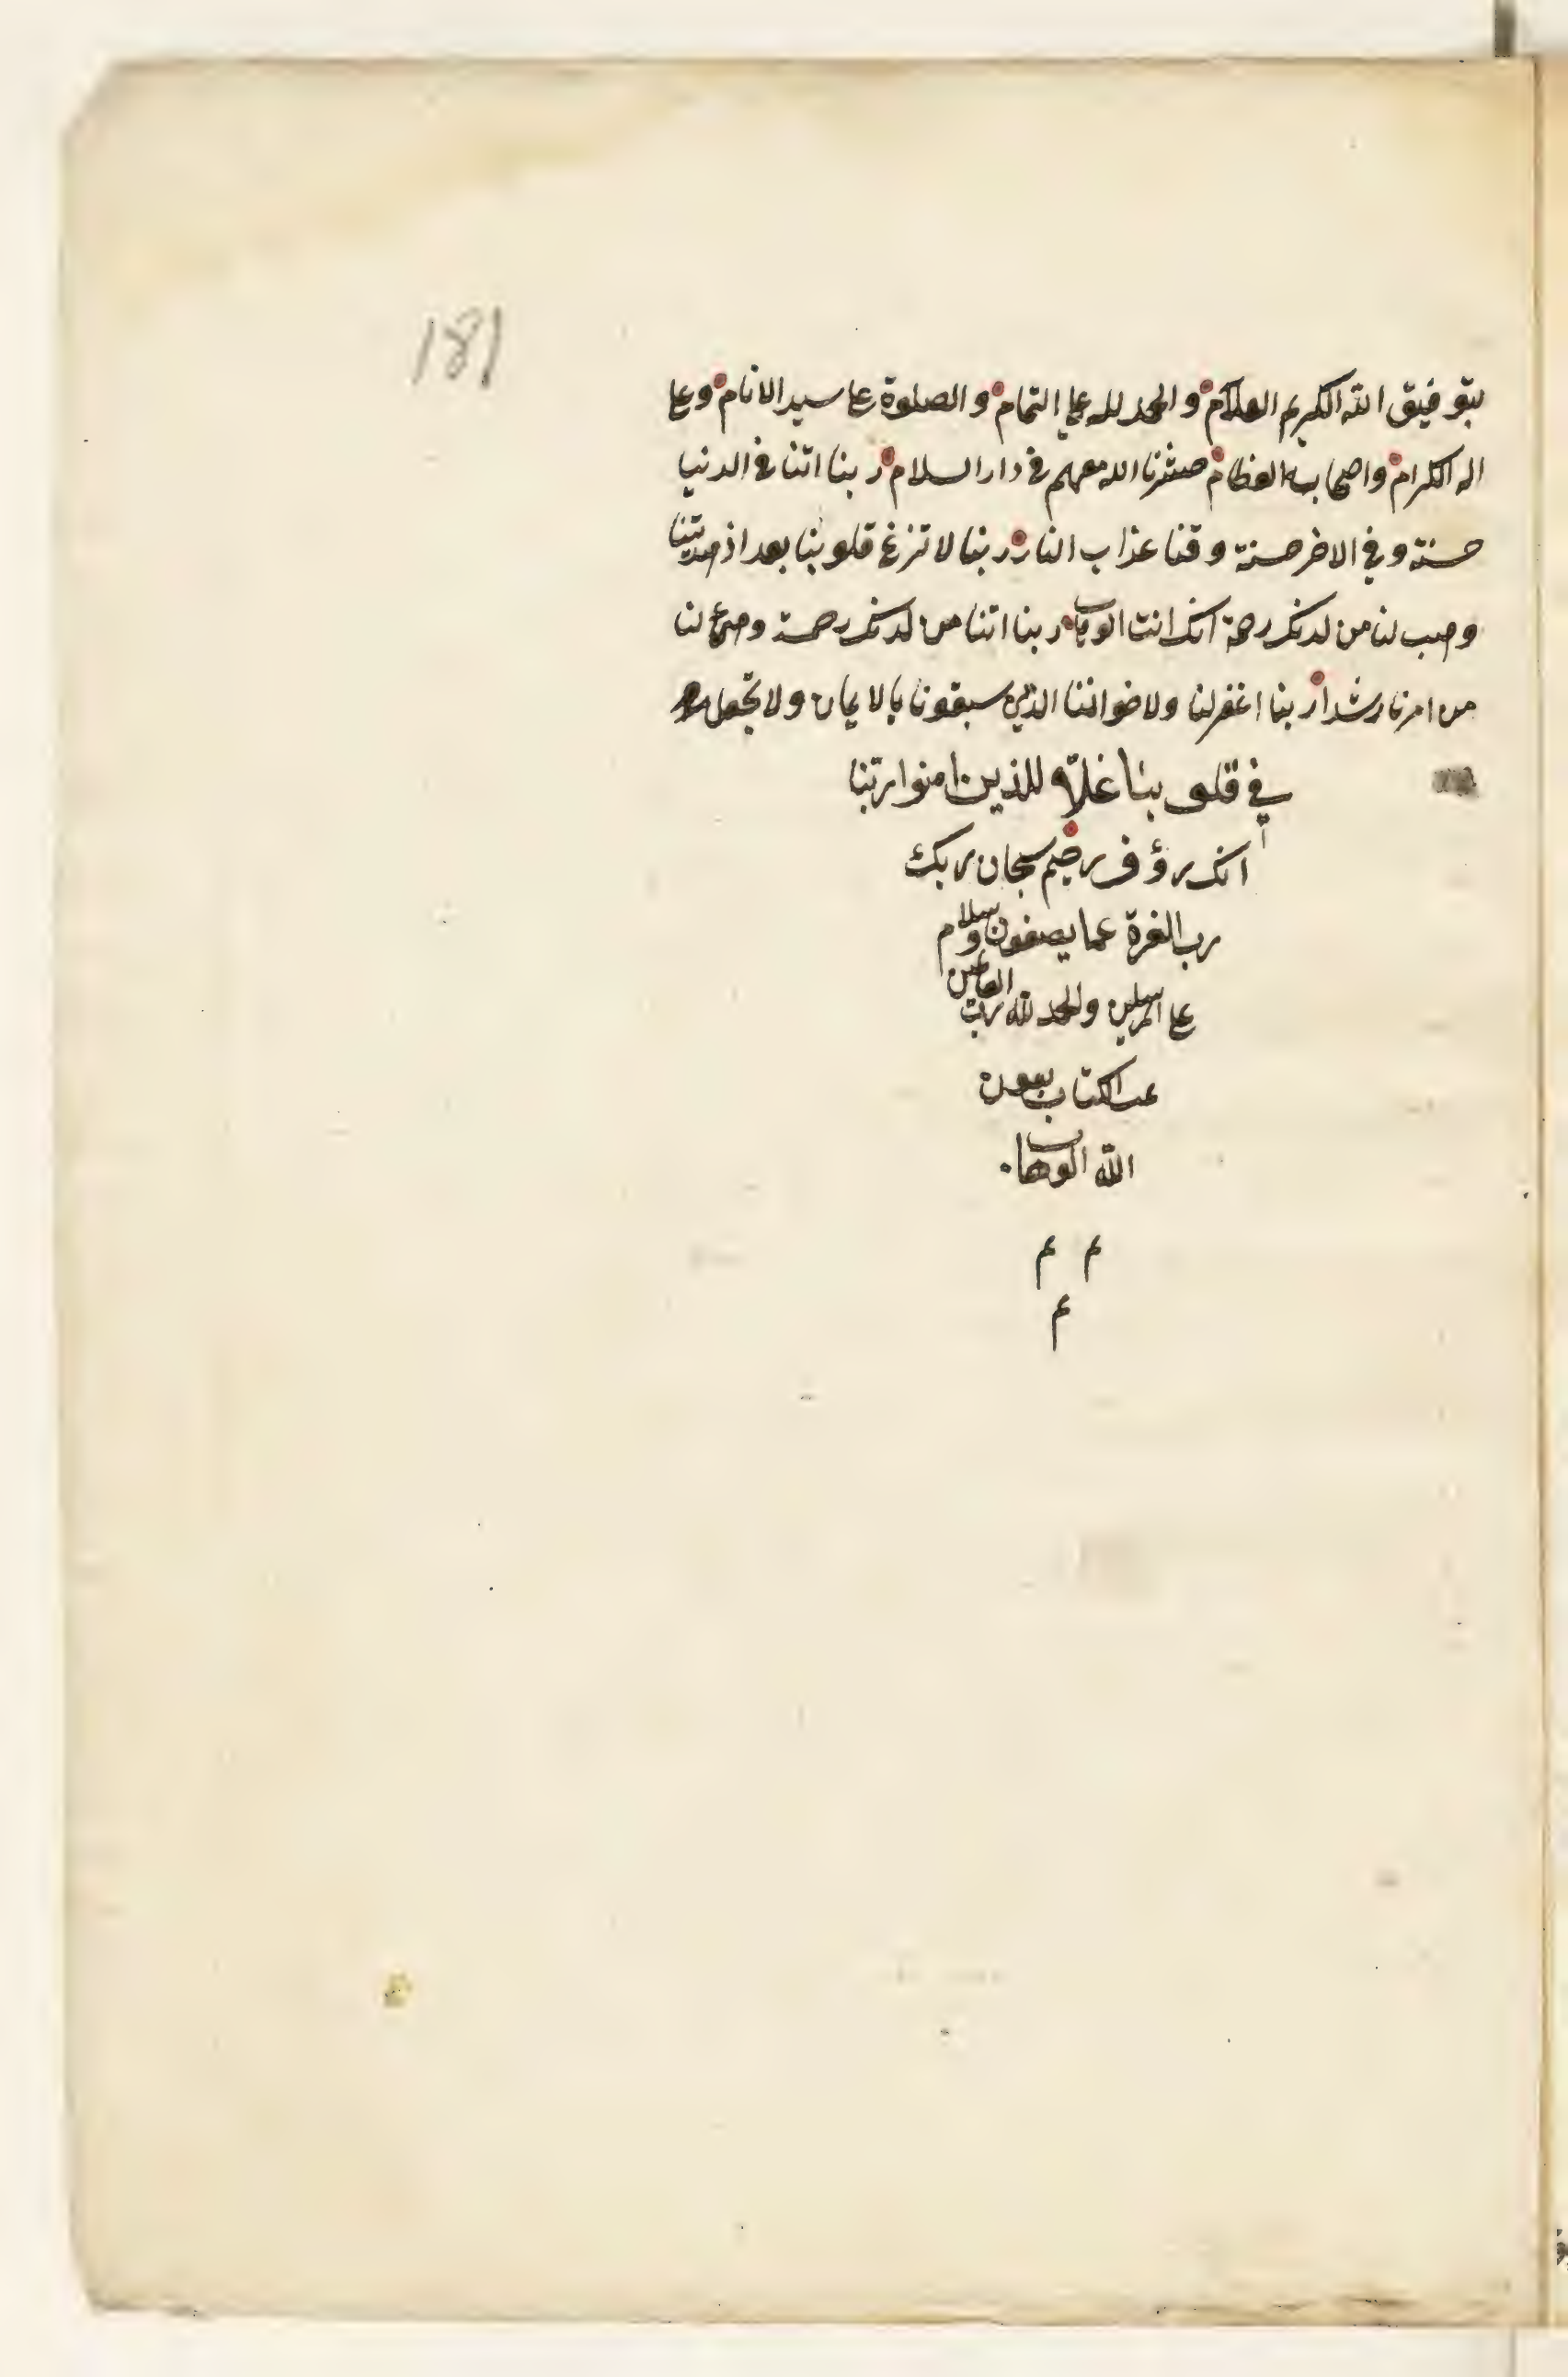 181
بتوفيق الله الكريم العلام والحمد لله على التمام والصلوة على سيد الانام وعلى
اله الكرام واصحابه العظام حشرنا الله معهم في دار السلام ربنا اتنا في الدنيا
حسنة وفي الاخر حسنة وقنا عذاب النار ربنا لا تزغ قلوبنا بعد اذ هديتنا
وهب لنا من لدنك رحمة انك انت الوهاب ربنا اتنا من لدنك رحمة وهيئ لنا
من امرنا رشدا ربنا اغفر لنا ولاخواننا الذين سبقونا بالايمان ولا تجعل
في قلوبنا غلا للذين امنوا ربنا
انك رؤف رحيم سبحان ربك
رب العزة عما يصفون وسلام
على المرسلين والحمد لله رب العالمين
تمت الكتاب بعون
الله الوهاب
م م
م